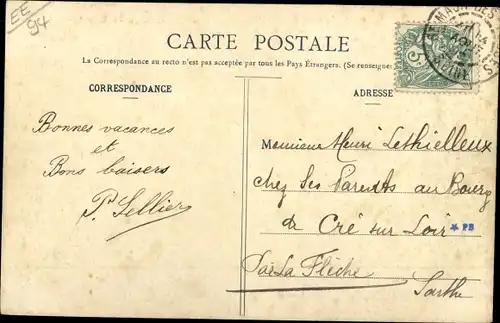 EE
94
CARTE POSTALE
La Correspondance au recto n'est pas acceptée par tous les Pays Étrangers. (Se renseigner
CORRESPONDANCE
ADRESSE
5
Bonnes vacances
et
Bons baisers
P. Lellier
Monsieur Henri Lethielleux
chez ses Parents au Bourg
de Cré sur Loir
* PB
Par La Flèche
Sarthe